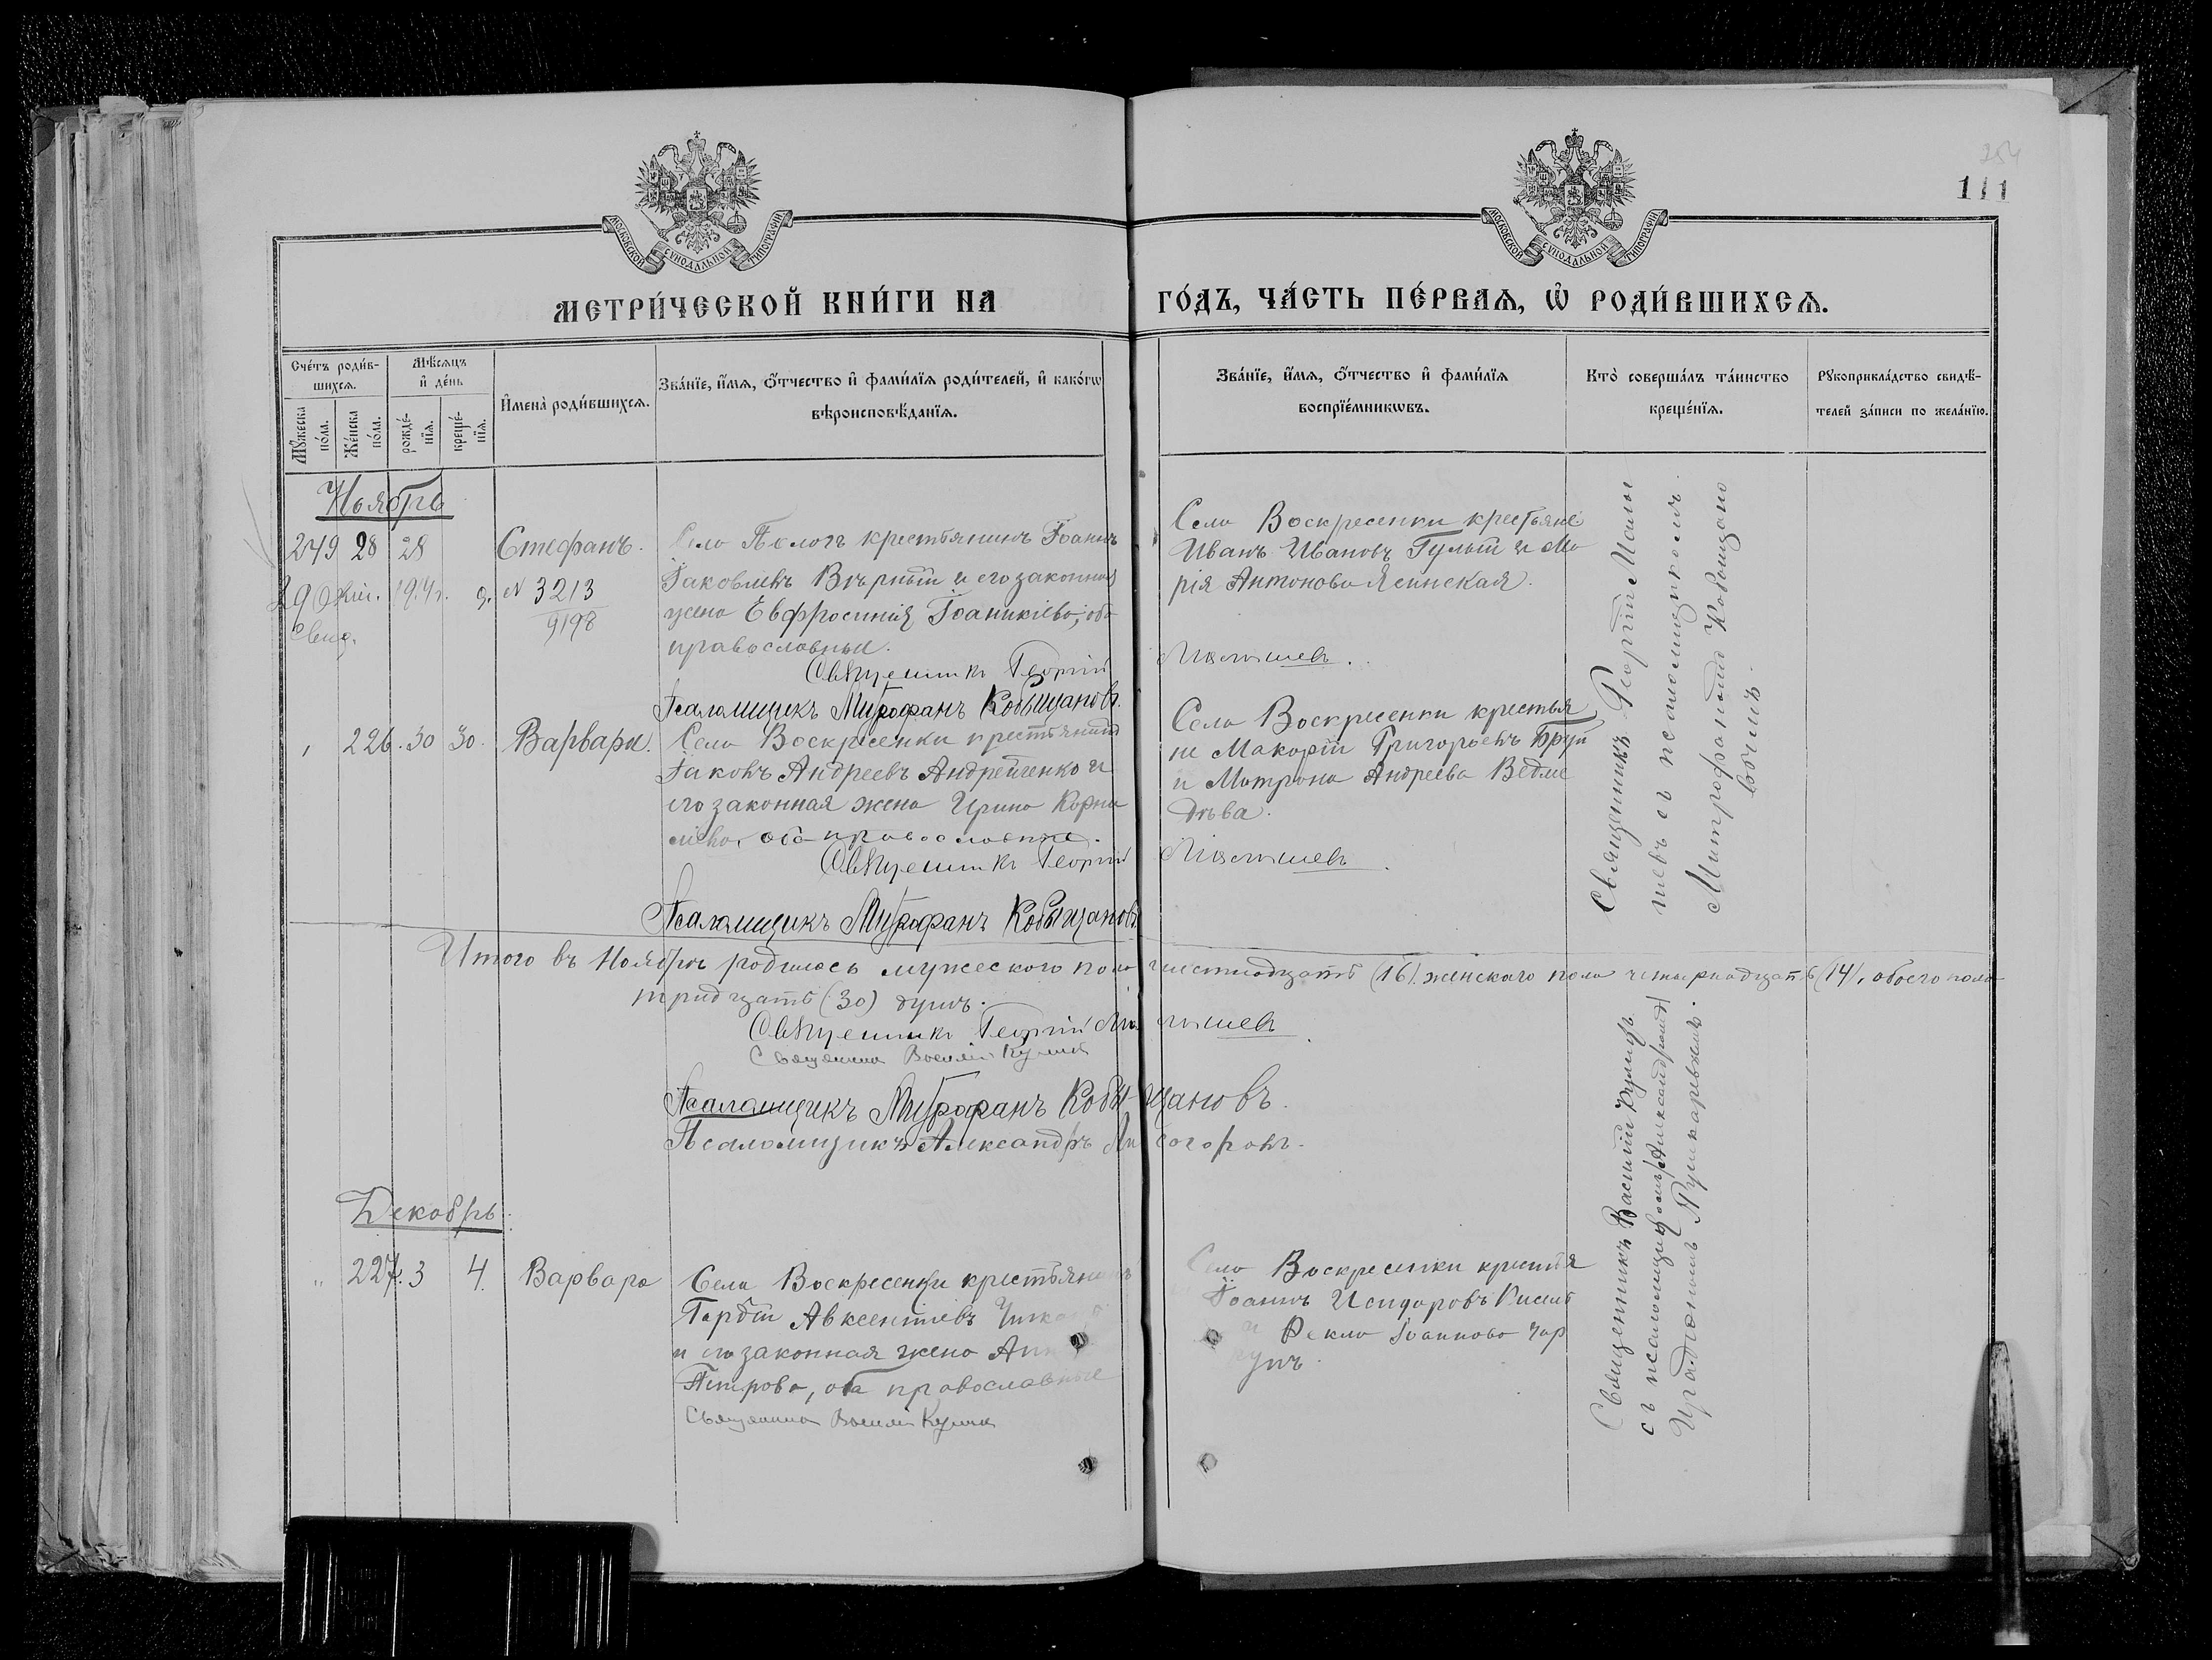 254
111
МОСКОВСКОЙ СѴНОДАЛЬНОЙ ТИПОГРАФІИ
МОСКОВСКОЙ СѴНОДАЛЬНОЙ ТИПОГРАФІИ
МЕТРИ́ЧЕСКОЙ КНИ́ГИ НА
ГО́ДЪ, ЧА́СТЬ ПЕ́РВАѦ, Ѡ҆ РОДИ́ВШИХСѦ.
Сче́тъ роди́в-
шихсѧ.
Мѣ́сѧцъ
и҆ де́нь
Мꙋ́жеска
по́ла.
Же́нска
по́ла.
рожде́-
нїѧ.
креще́-
нїѧ.
И҆мена̀ роди́вшихсѧ.
Зва́нїе, и҆́мѧ, ѻ҆́тчество и҆ фами́лїѧ роди́телей, и҆ како́гѡ
вѣроисповѣ́данїѧ.
Зва́нїе, и҆́мѧ, ѻ҆́тчество и҆ фами́лїѧ
воспрїе́мникѡвъ.
Кто̀ соверша́лъ та́инство
креще́нїѧ.
Рꙋкоприкла́дство свидѣ́-
телей за́писи по жела́нїю.
Ноябрь
249 28 28
Стефанъ.
Село Пологъ крестьянинъ Іоаннъ
Іаковлевъ Вѣрный и его законная
жена Евфросинія Іоаникіева, оба
православные.
№ 3213
9198
Священникъ Георгій
Псаломщикъ Митрофанъ Кобыщановъ.
Села Воскресенки крестьяне
Иванъ Ивановъ Гулый и Ма
рія Антонова Ясинская.
Священникъ Георгій
съ псаломщикомъ
Митрофаномъ Кобыщано
вымъ.
226. 30 30.
Варвара.
Села Воскресенки крестьянинъ
Іаковъ Андреевъ Андрейченко и
его законная жена Ирина Корни
лиева, оба православные.
Священникъ Георгій
Псаломщикъ Митрофанъ Кобыщановъ.
Села Воскресенки крестья
не Макарій Григорьевъ Бруй
и Матрона Андреева Ведме
дѣва.
Итого въ Ноябрѣ родилось мужескаго пола шестнадцать (16), женскаго пола четырнадцать (14), обоего пола
тридцать (30) душъ.
Священникъ Георгій
Священникъ Василій
Псаломщикъ Митрофанъ Кобыщановъ.
Псаломщикъ Александръ
Декабрь.
227. 3 4.
Варвара
Села Воскресенки крестьянинъ
Гордій Авксентіевъ
и его законная жена
Петрова, оба православные
Священникъ Василій
Села Воскресенки крестья
Іоаннъ Исидоровъ
и Фекла Іоаннова
Священникъ Василій
съ псаломщикомъ